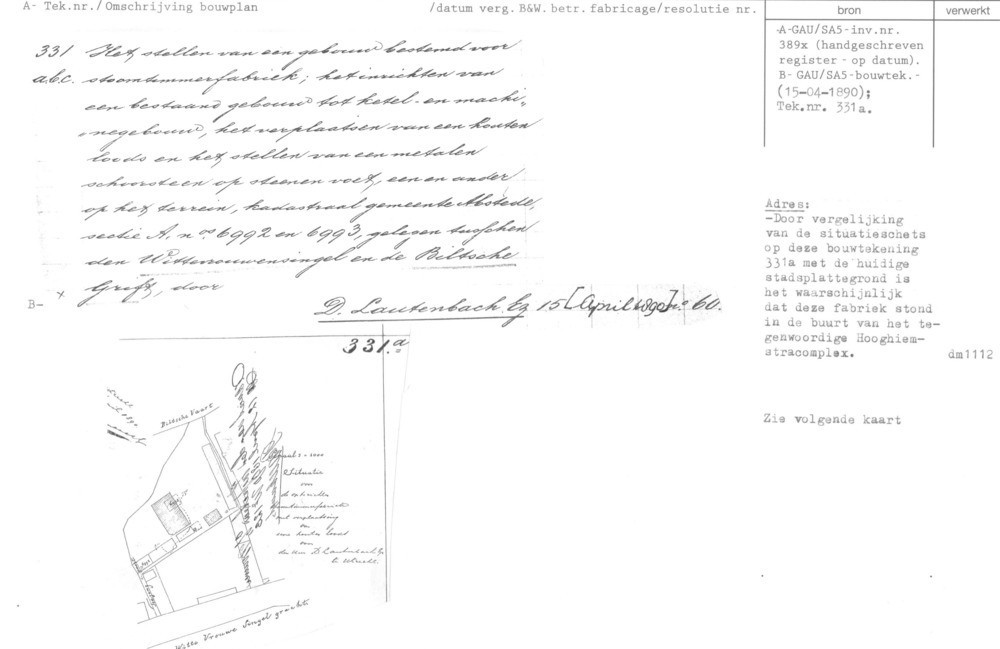 A- Tek.nr./Omschrijving bouwplan /datum verg. B&W. betr. fabricage/resolutie nr. bron verwerkt
331 Het stellen van een gebouw bestemd voor
a.b.c. stoomtimmerfabriek; het inrichten van
een bestaand gebouw tot ketel- en machi-
negebouw, het verplaatsen van een houten
loods en het stellen van een metalen
schoorsteen op steenen voet, een en ander
op het terrein, kadastraal gemeente Abstede,
sectie A. nos 6992 en 6993, gelegen tusschen
den Wittevrouwensingel en de Biltsche
Grift, door
B- x
D. Lautenbach Ez 15 [April 1890] no. 60.
A-GAU/SA5-inv.nr.
389x (handgeschreven
register - op datum).
B- GAU/SA5-bouwtek.-
(15-04-1890);
Tek.nr. 331a.
Adres:
-Door vergelijking
van de situatieschets
op deze bouwtekening
331a met de huidige
stadsplattegrond is
het waarschijnlijk
dat deze fabriek stond
in de buurt van het te-
genwoordige Hooghiem-
stracomplex. dm1112
Zie volgende kaart
331.a
Biltsche Vaart
Situatie
met verplaatsing
houten loods
D. Lautenbach Ez
Utrecht.
Witte Vrouwe Singel gracht